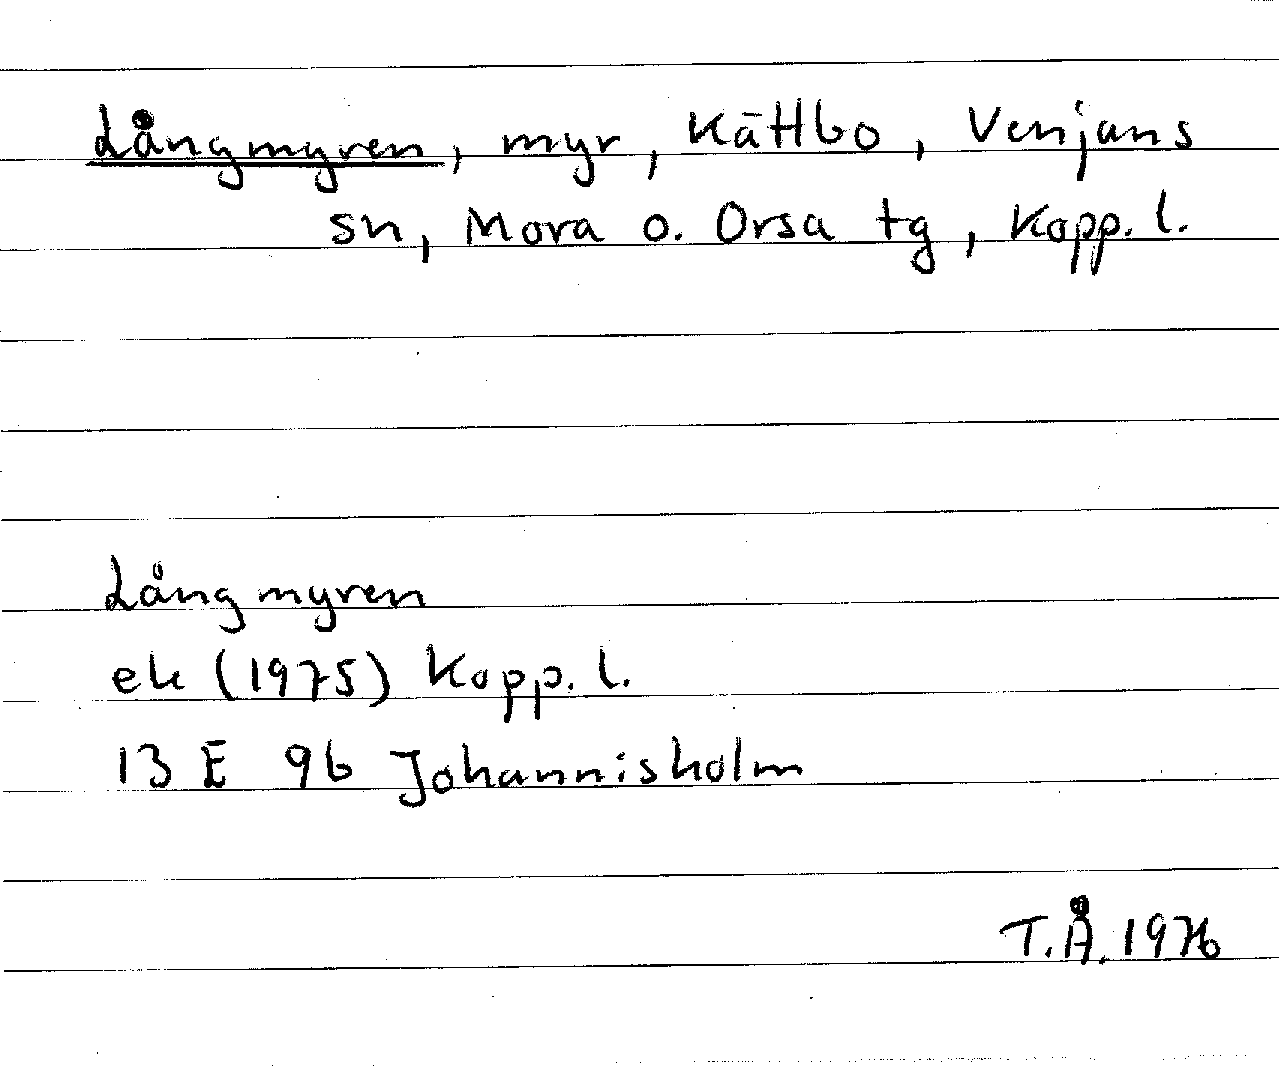 Långmyren, myr, Kättbo, Venjans
sn, Mora o. Orsa tg, Kopp. l.
Långmyren
ek (1975) Kopp. l.
13 E 9b Johannisholm
T.Å. 1976